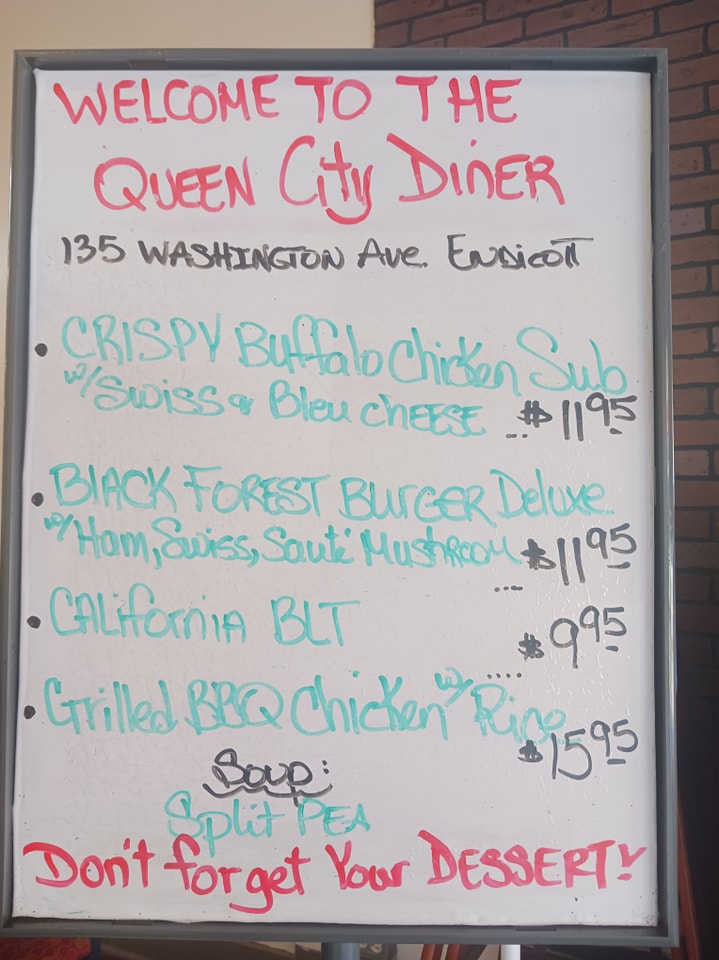 WELCOME TO THE
QUEEN City DinER
135 WASHINGTON Ave. ENDicOTT
• CRISPY Buffalo Chicken Sub
w/Swiss & Bleu cHEESE ... $11.95
• BLACK FOREST BURGER Deluxe
w/Ham, Swiss, Sauté MushROOM ... $11.95
• CALiforniA BLT .... $9.95
• Grilled BBQ Chicken w/ Rice $15.95
Soup:
Split PEA
Don't forget Your DESSERT!